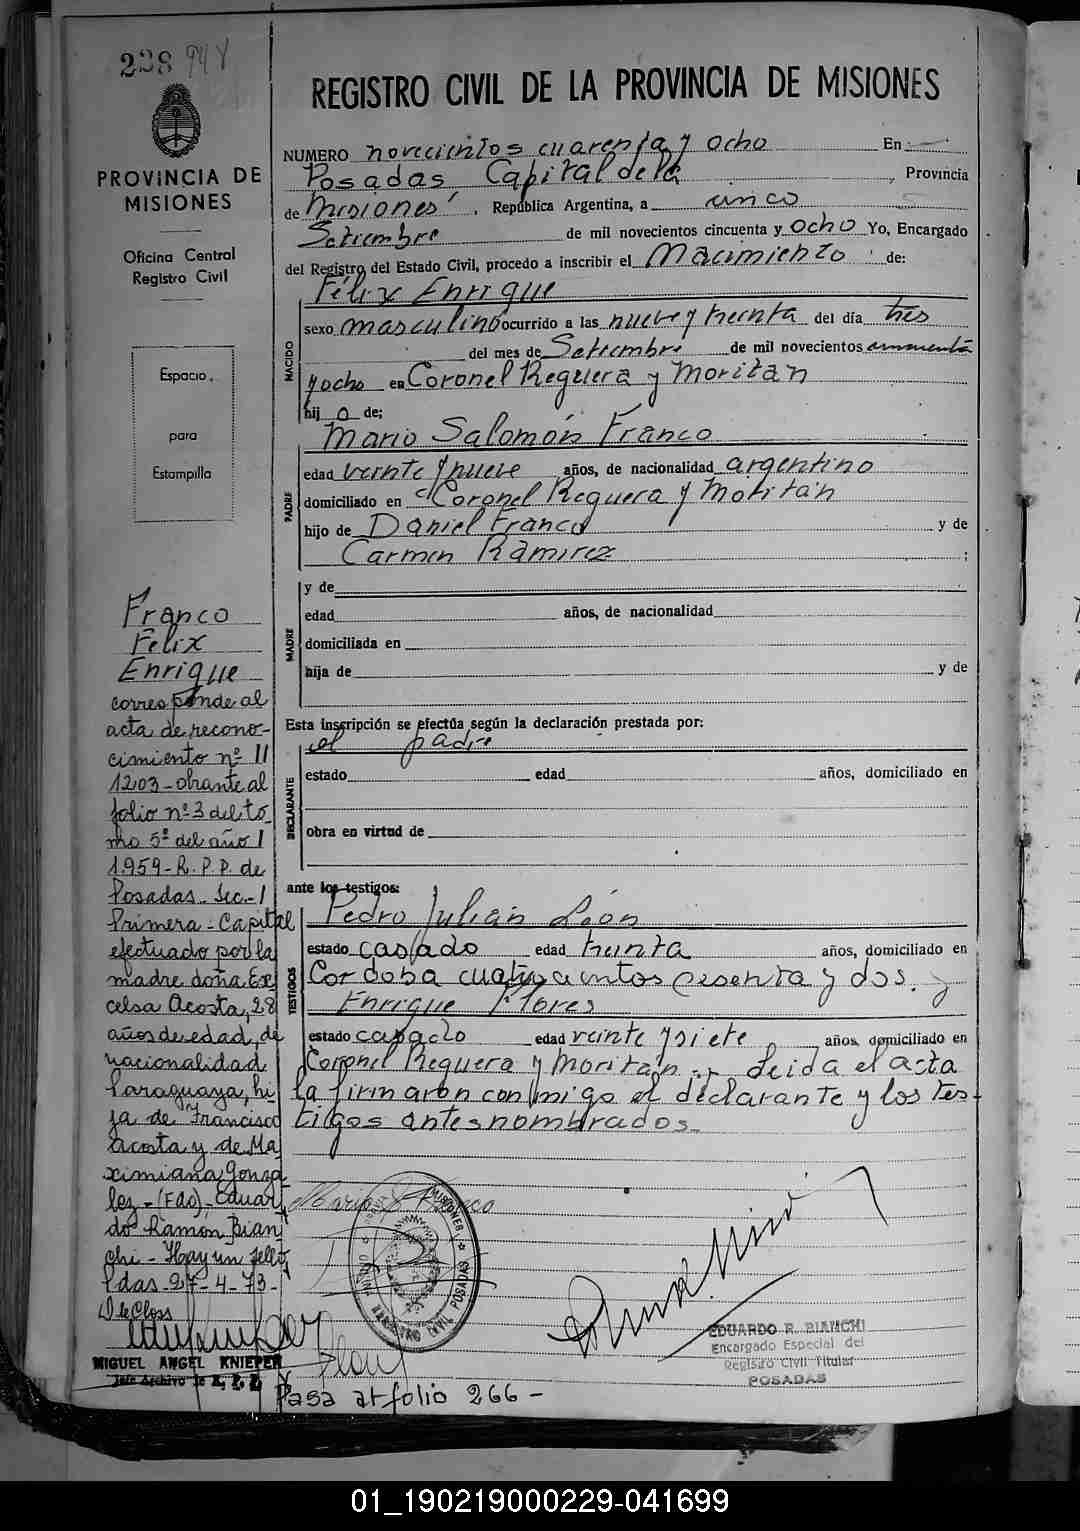 228 948
PROVINCIA DE
MISIONES
Oficina Central
Registro Civil
Espacio
para
Estampilla
REGISTRO CIVIL DE LA PROVINCIA DE MISIONES
NUMERO novecientos cuarenta y ocho En
Posadas, Capital de la , Provincia
de Misiones , República Argentina, a cinco
Setiembre de mil novecientos cincuenta y ocho Yo, Encargado
del Registro del Estado Civil, procedo a inscribir el Nacimiento de:
Félix Enrique
NACIDO
sexo masculino ocurrido a las nueve y treinta del día tres
del mes de Setiembre de mil novecientos cincuenta
y ocho en Coronel Reguera y Moritán
hij o de;
Mario Salomón Franco
PADRE
edad veinte y nueve años, de nacionalidad argentino
domiciliado en Coronel Reguera y Moritán
hijo de Daniel Franco y de
Carmen Ramirez ;
MADRE
y de
edad años, de nacionalidad
domiciliada en
hija de y de
Esta inscripción se efectúa según la declaración prestada por:
el padre
DECLARANTE
estado edad años, domiciliado en
obra en virtud de
ante los testigos:
Pedro Julián León
TESTIGOS
estado casado edad treinta años, domiciliado en
Cordoba cuatrocientos sesenta y dos. y
Enrique Flores
estado casado edad veinte y siete años, domiciliado en
Coronel Reguera y Moritán .- Leida el acta
la firmaron conmigo el declarante y los tes-
tigos antes nombrados.
Franco
Felix
Enrique
corresponde al
acta de recono-
cimiento nº 11
1203 - obrante al
folio nº 3 del to
mo 5º del año
1959 - R. P. P. de
Posadas - Sec. -
Primera - Capital
efectuado por la
madre doña Ex
celsa Acosta, 28
años de edad, de
nacionalidad
Paraguaya, hi
ja de Francisco
Acosta y de Ma
ximiana Gonza
lez - (Fdo) - Eduar
do Ramon Bian
chi - Hay un sello
Pdas - 27 - 4 - 73 -
MIGUEL ANGEL KNIEPER
Jefe Archivo
Mario S Franco
MISIONES
POSADAS
REGISTRO CIVIL
EDUARDO R. BIANCHI
Encargado Especial del
Registro Civil Titular
POSADAS
Pasa al folio 266 -
01_190219000229-041699